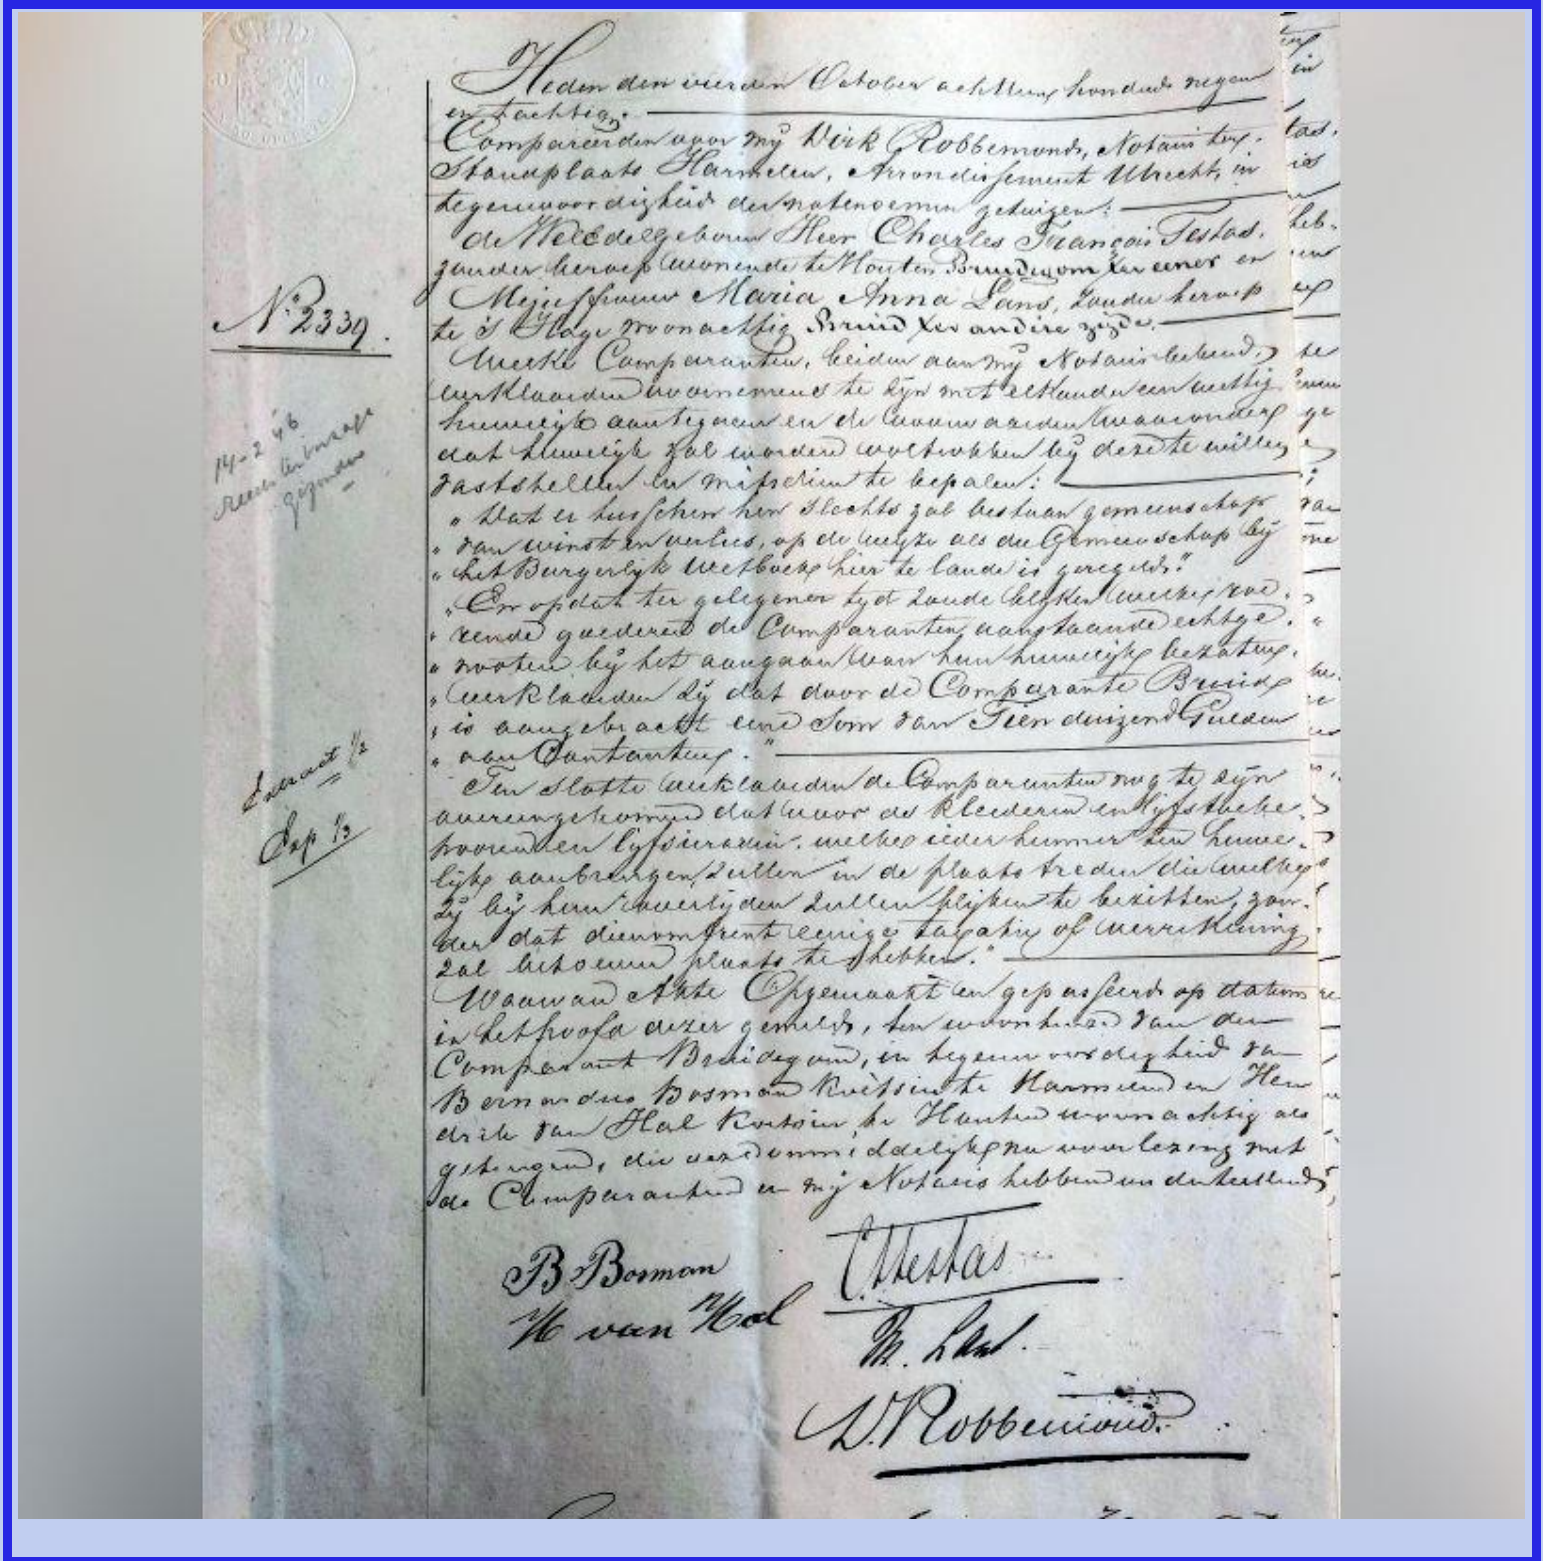 Heden den vierden October achttien honderd negen
en tachtig.
Compareerden voor mij Dirk Robbemond, Notaris ter
Standplaats Harmelen, Arrondissement Utrecht, in
tegenwoordigheid der natenoemen getuigen:
de WelEdelgeboren Heer Charles François Testas,
zonder beroep wonende te Houten Bruidegom ter eener en
Mejuffrouw Maria Anna Lans, zonder beroep
te 's Hage woonachtig Bruid ter andere zijde.
Welke Comparanten, beiden aan mij Notaris bekend,
verklaarden voornemens te zijn met elkander een wettig
huwelijk aantegaan en de voorwaarden waaronder
dat huwelijk zal worden voltrokken bij deze te willen
vaststellen en mitsdien te bepalen:
„ Dat er tusschen hen slechts zal bestaan gemeenschap
„ van winst en verlies, op de wijze als die Gemeenschap bij
„ het Burgerlijk Wetboek hier te lande is geregeld."
„ En opdat ter gelegener tyd zoude blijken welke roe-
„ rende goederen de Comparanten, aanstaande echtge-
„ nooten bij het aangaan van hun huwelijk bezaten,
„ verklaarden zij dat door de Comparante Bruid
„ is aangebracht eene Som van Tien duizend Gulden
„ aan Contanten."
Ten Slotte verklaarden de Comparanten nog te zijn
overeengekomen dat voor de kleederen en lijfstoebe-
hooren en lijfsieraden, welke ieder hunner ten huwe-
lijk aanbrengen, zullen in de plaats treden die welke
zij bij hun overlijden zullen blijken te bezitten, zon-
der dat dienomtrent eenige taxatie of verrekening
zal behoeven plaats te hebben."
Waarvan Akte Opgemaakt en gepasseerd op datum
in het hoofd dezer gemeld, ten woonhuize van den
Comparant Bruidegom, in tegenwoordigheid van
Bernardus Bosman Koetsier te Harmelen en Hen
drik van Hal Koetsier, te Houten woonachtig als
getuigen, die deze onmiddelijk na voorlezing met
de Comparanten en mij Notaris hebben onderteekend
B Bosman
H van Hal
CFTestas
M. Lans.
D. Robbemond.
No. 2339.
14-2 '46
gezonden
Extract 1/2
Exp 1/3